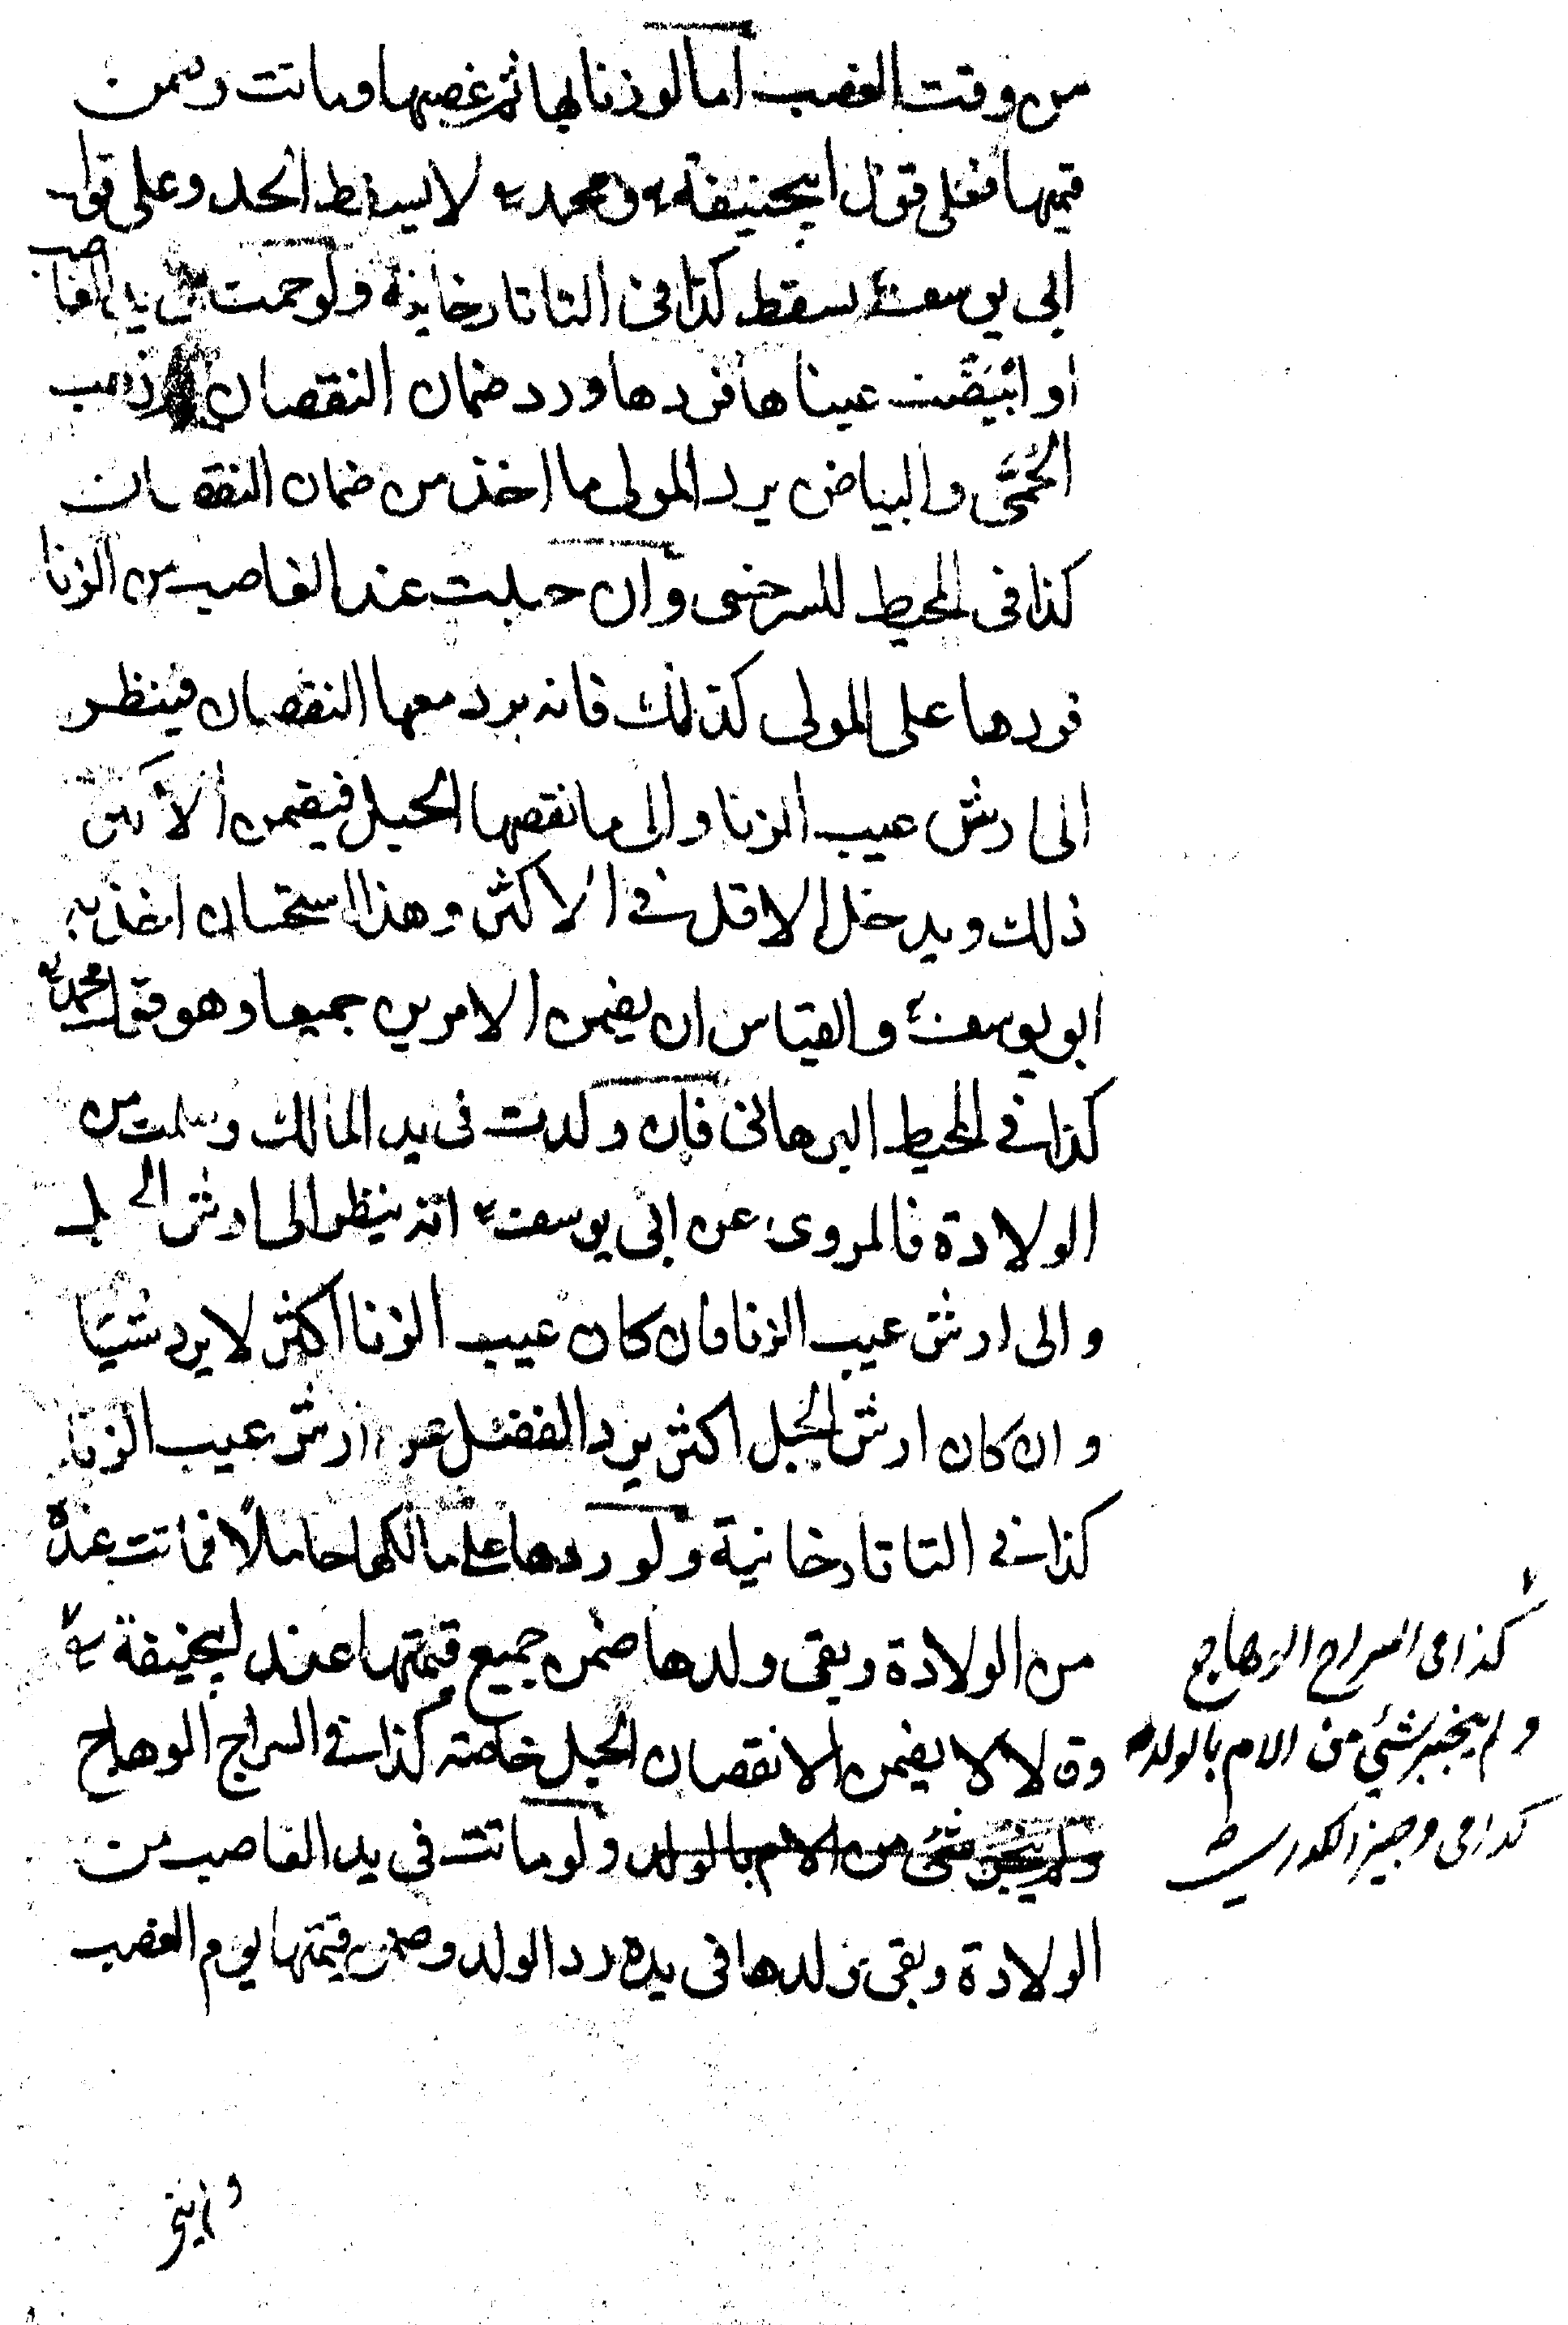 من وقت الغصب اما لو زنا بها ثم غصبها وماتت وضمن
قيمتها فعلى قول ابيحنيفة رح ومحمد رح لا يسقط الحد وعلى قول
ابي يوسف رح يسقط كذا في التاتارخانية ولو حمت في يد الغاصب
او ابيضت عيناها فردها ورد ضمان النقصان ذهب
الحمّى والبياض يرد المولى ما اخذ من ضمان النقصان
كذا في المحيط للسرخسي وان حبلت عند الغاصب من الزنا
فردها على المولى كذلك فانه يرد معها النقصان فينظر
الى ارش عيب الزنا والى ما نقصها الحبل فيضمن الاكثر من
ذلك ويدخل الاقل في الاكثر وهذا استحسان اخذ به
ابو يوسف رح والقياس ان يضمن الامرين جميعا وهو قول محمد رح
كذا في المحيط البرهاني فان ولدت في يد المالك وسلمت من
الولادة فالمروى عن ابي يوسف رح انه ينظر الى ارش الحبل
والى ارش عيب الزنا فان كان عيب الزنا اكثر لا يرد شيئا
وان كان ارش الحبل اكثر يرد الفضل عن ارش عيب الزنا
كذا في التاتارخانية ولو ردها على مالكها حاملًا فماتت عنده
من الولادة وبقى ولدها ضمن جميع قيمتها عند ابيحنيفة رح
وقالا لا يضمن الا نقصان الحبل خاصته كذا في السراج الوهاج
ولم يجبر شئ من الام بالولد ولو ماتت في يد الغاصب من
الولادة وبقى ولدها في يده رد الولد وضمن قيمتها يوم الغصب
كذا في السراج الوهاج
ولم يجبر شئ من الام بالولد
كذا في وجيز الكردري